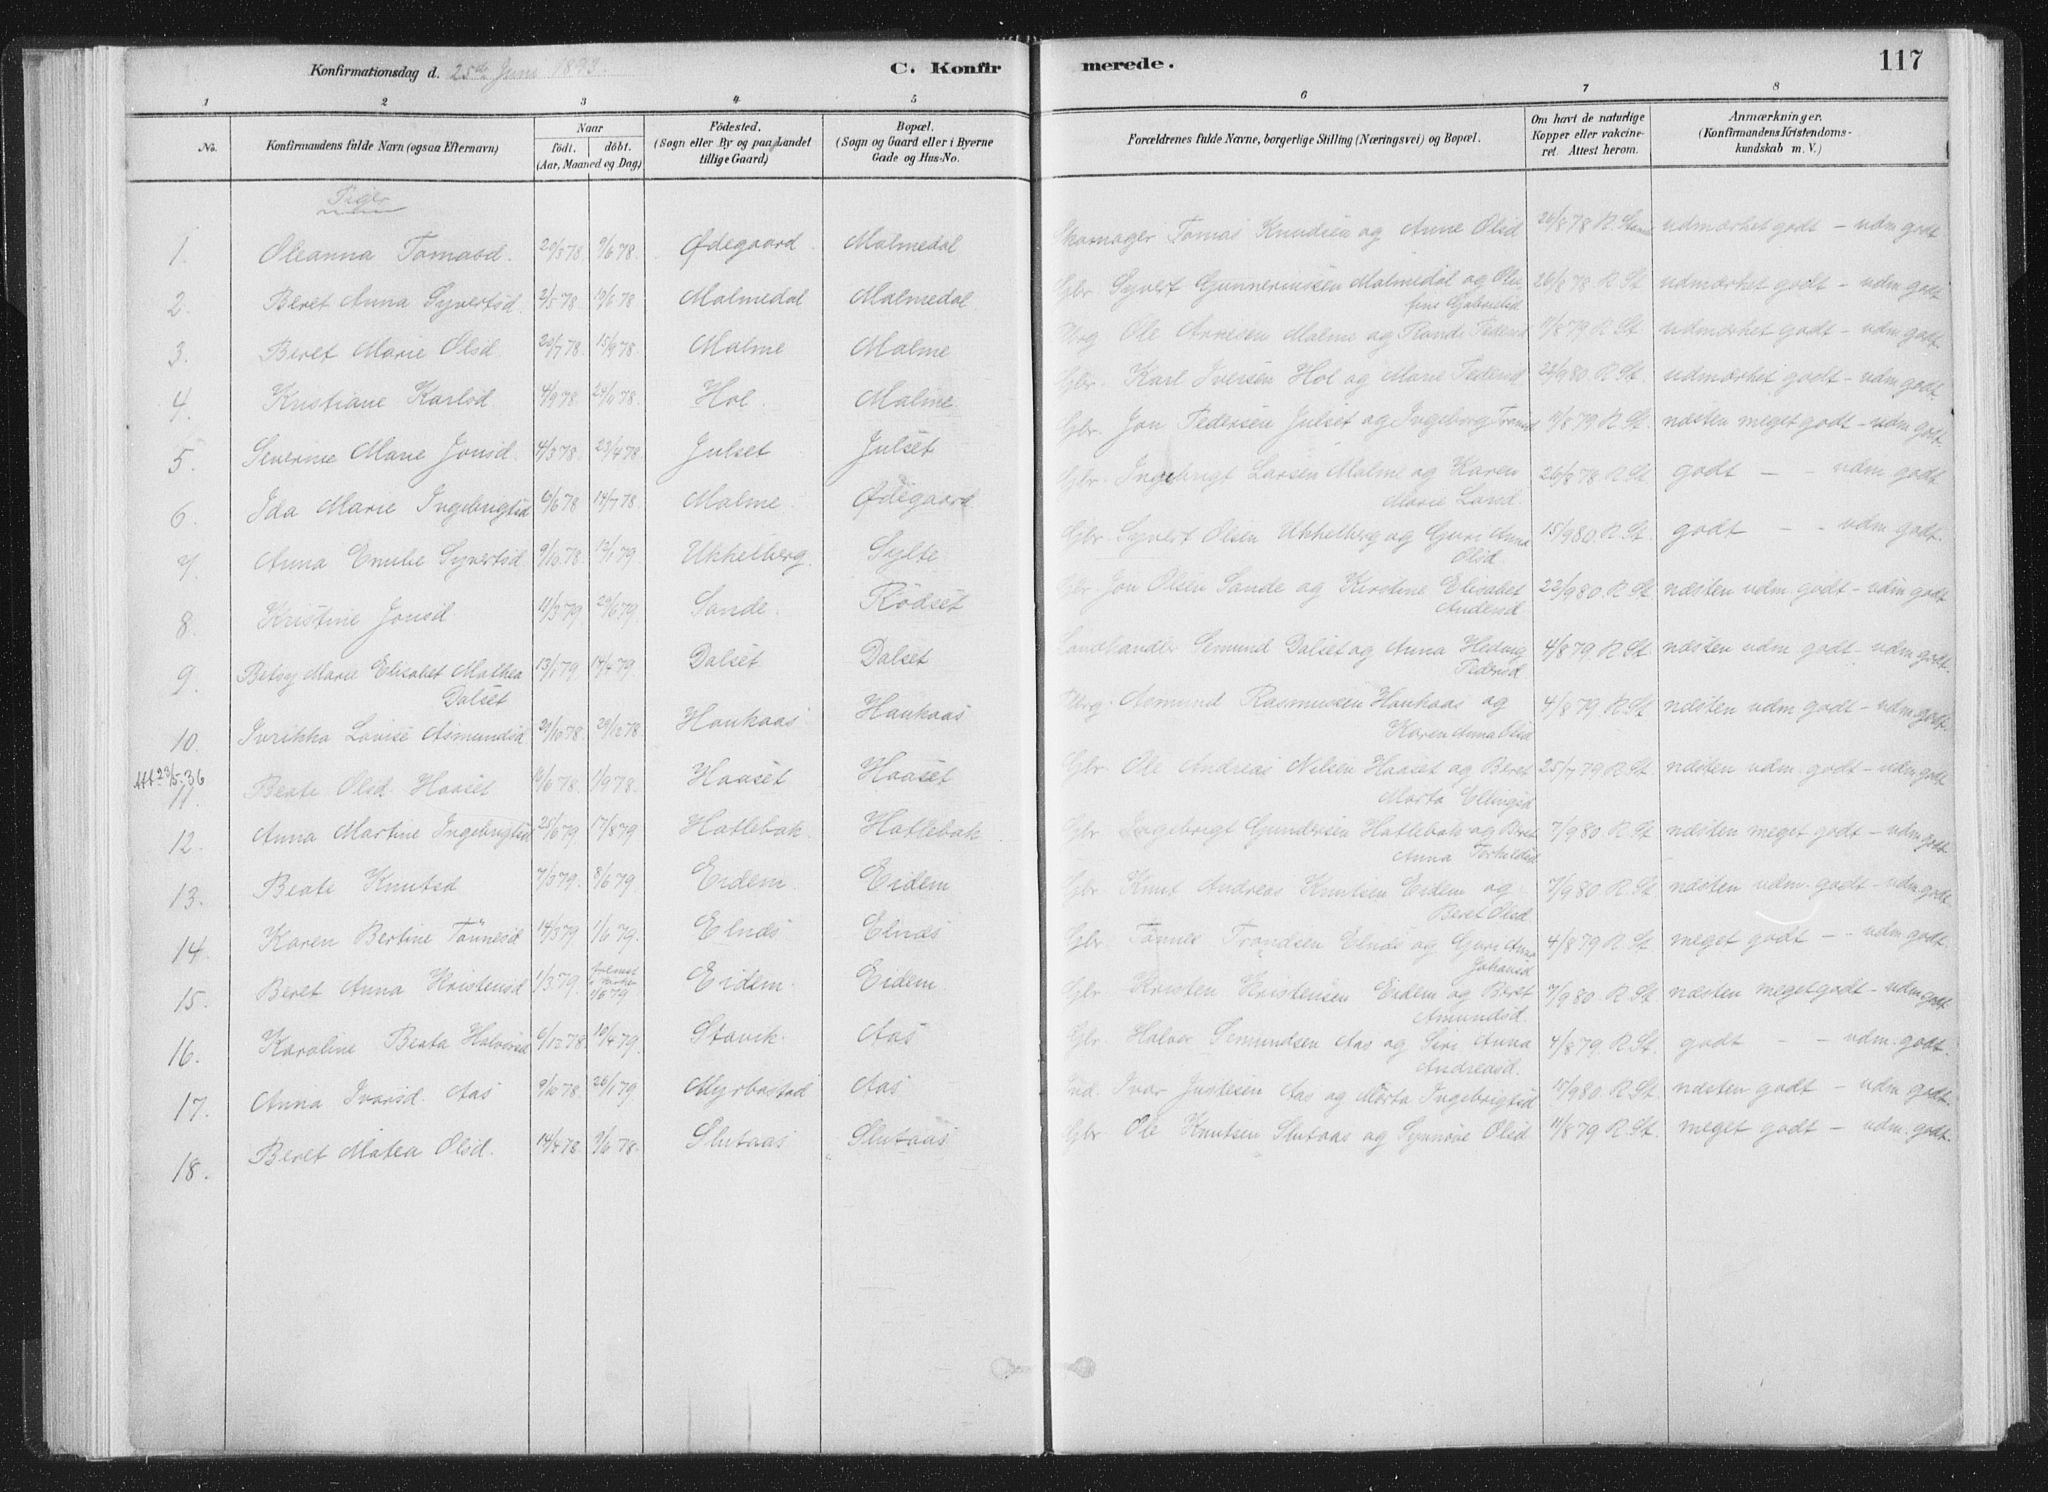 Konfirmationsdag d. 25de Juni 1893. C. Konfirmerede. 117
1 2 3 4 5 6 7 8
No. Konfirmandens fulde Navn (ogsaa Efternavn) Naar født. døbt. (Aar, Maaned og Dag) Fødested. (Sogn eller By og paa Landet tillige Gaard) Bopæl. (Sogn og Gaard eller i Byerne Gade og Hus-No. Forældrenes fulde Navne, borgerlige Stilling (Næringsvei) og Bopæl. Om havt de naturlige Kopper eller vakcineret. Attest herom. Anmærkninger. (Konfirmandens Kristendomskundskab m. V.)
Piger
1. Oleanna Tomasd. 20/5 78 9/6 78. Ødegaard. Malmedal Skomager Tomas Knudsen og Anne Olsd 26/8 78 R. udmærket godt - udm godt
2. Beret Anna Syvertsd. 2/5 78 Malmedal Malmedal Gbr. Syvert Gunnerinssen Malmedal og
Gabrielsd 26/8 78 R. St. udmærket godt - udm godt
3. Beret Marie Olsd. 20/7 78 15/9 78 Malme Malme Ole Arnesen Malme og 11/8 79 R. St. udmærket godt - udm. godt.
4. Kristiane Karlsd. 4/9 78 Hol. Malme. Gbr. Karl Iversen Hol og Marie Pedersd R. St. udmærket godt - udm godt
5. Severine Marie Jonsd. 4/3 78 23/4 78 Julset Julset Gbr. Jon Pedersen Julset og Ingeborg 11/8 79 R. St. næsten meget godt - udm. godt.
6. Ida Marie Ingebrigtsd 6/6 78 14/7 78 Malme Ødegaard. Gbr. Ingebrigt Larsen Malme og Karen
Marie Land. 26/8 78 R. St godt - - udm. godt
7. Anna Emilie Syvertsd 9/10 78 12/1 79 Ukkelberg. Sylte Gbr. Syvert Olsen Ukkelberg og Guri Anna
Olsd. 15/9 80 R. St. godt - - udm godt.
8. Kristine Jonsd 11/3 79. 29/6 79. Sande. Rødset Gbr Jon Olsen Sande og Kirstine Elisabet
Andersd. 22/9 80 R. St. næsten udm. godt - udm godt
9. Betsy Marie Elisabet Mathea
Dalset 13/1 79. 14/4 79. Dalset Dalset Landhandler Semund Dalset og Anna Hedvig
Pedersd. 4/8 79. R. St. næsten udm. godt - udm godt.
10. Lovise Asmundsd 20/10 78 29/12 78. Haukaas Haukaas Asmund Rasmussen Haukaas og
Karen Anna Olsd 4/8 79. R. St. næsten udm. godt - udm. godt.
Att. 23/5-36
11. Beate Olsd. Haaset 78. 1/9 78. Haaset Haaset Gbr. Ole Andreas Nilsen Haaset og Beret
Marta Ellingsd 25/7 79 R. St. næsten udm. godt - udm. godt
12. Anna Martine Ingebrigtsd 25/6 79. 17/8 79. Hatlebak. Hatlebak Gbr Ingebrigt Gundersen Hatlebak og Beret
Anna Torkildsd 7/9 80. R. St. næsten meget godt - udm. godt.
13. Beate Knutsd 7/3 79. 8/6 79. Eidem. Eidem Gbr. Knut Andreas Knutsen Eidem og
Beret Olsd. 7/9 80 R. St næsten udm. godt - udm. godt.
14. Karen Bertine Tønnesd 14/3 79. 1/6 79. Elnæs Elnæs Gbr. Tønnes Trondsen Elnæs og Guri Anna
Johansd 4/8 79 R. St meget godt - - udm. godt
15. Beret Anna Kristensd 1/3 79. 79 Eidem. Eidem. Gbr. Kristen Kristensen Eidem og Beret
Amundsd. 7/9 80. R. St næsten meget godt - udm. godt
16. Karoline Beata Halvorsd 6/12 78. 10/4 79. Stavik. Aas Gbr. Halvor Semundsen Aas og Siri Anna
Andreasd. 4/8 79. R. St. godt - - udm. godt.
17. Anna Ivarsd. Aas 9/10 78. 26/1 79. Myrbostad Aas Ind. Ivar Justesen Aas og Marta Ingebrigtsd R. St. næsten godt - udm. godt.
18. Beret Matea Olsd. 14/4 78. 9/6 78. Slutaas Slutaas Gbr Ole Knutsen Slutaas og Synnøve Olsd 11/8 79 R. St. meget godt - udm. godt.